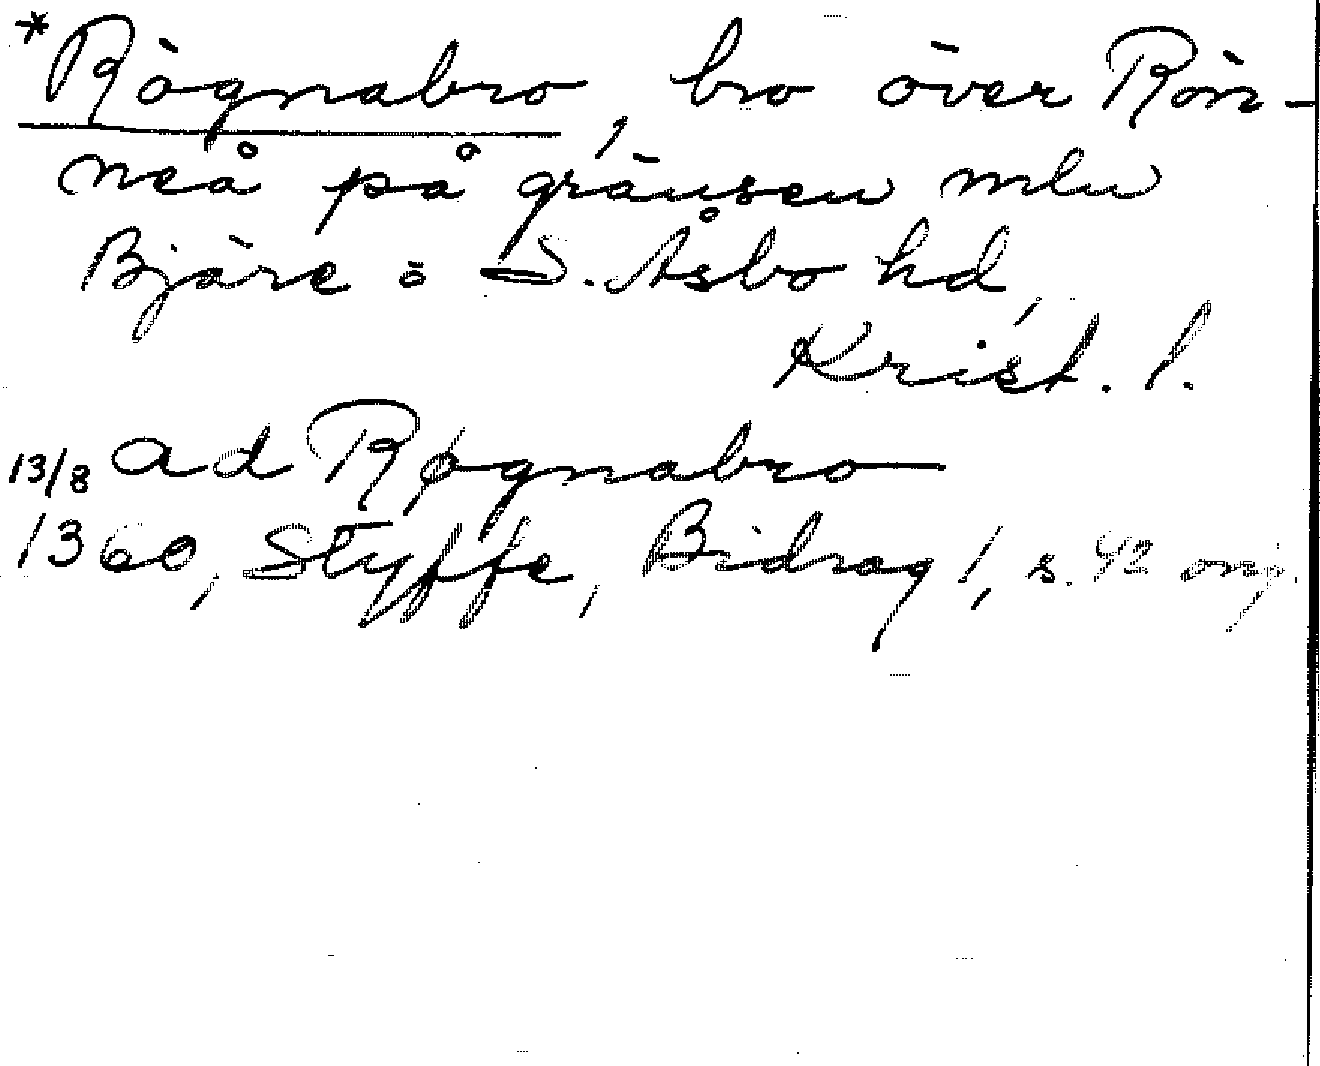 *Rögnabro, bro över Rön-
neå på gränsen mln
Bjäre o S. Åsbo hd,
Krist. l.
13/8 ad Røgnabro
1360, Styffe, Bidrag 1, s. 42 orig.